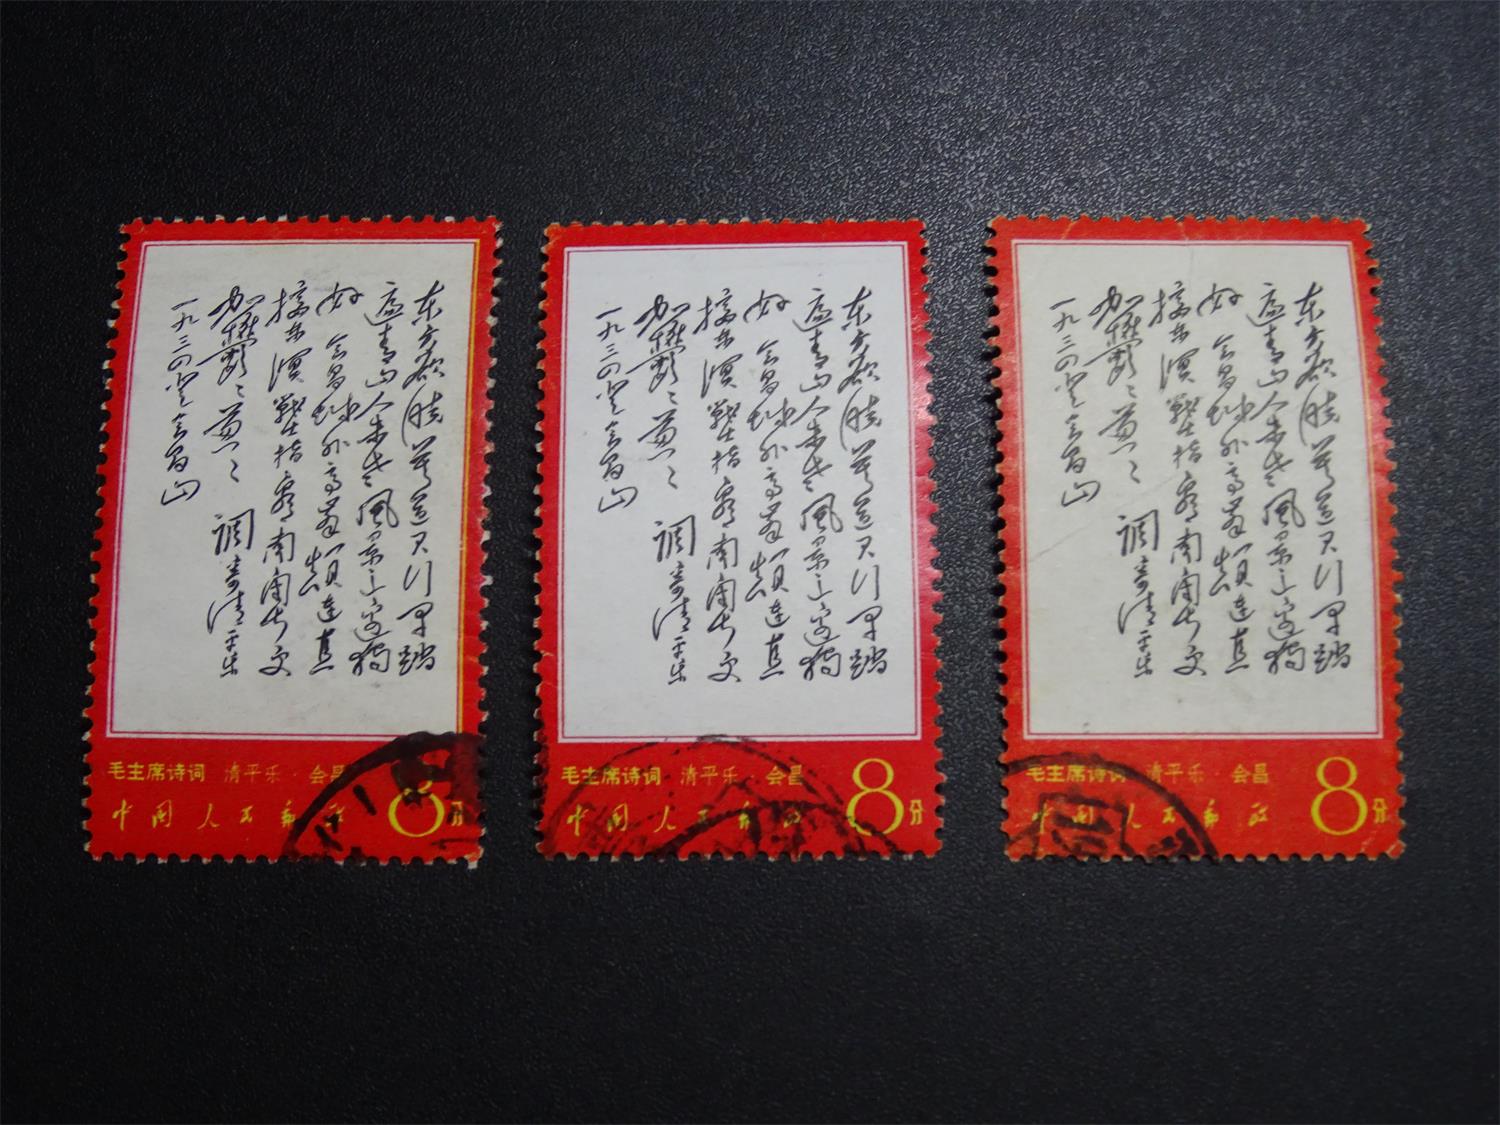 东方欲晓莫道君行早踏
遍青山人未老风景这边独
好 会昌城外高峯颠连直
接东溟戰士指看南粤更
加欝〻葱〻 调寄清平乐
一九三四登会昌山
毛主席诗词 清平乐·会昌
中国人民邮政
8分
东方欲晓莫道君行早踏
遍青山人未老风景这边独
好 会昌城外高峯颠连直
接东溟戰士指看南粤更
加欝〻葱〻 调寄清平乐
一九三四登会昌山
毛主席诗词 清平乐·会昌
中国人民邮政
8分
东方欲晓莫道君行早踏
遍青山人未老风景这边独
好 会昌城外高峯颠连直
接东溟戰士指看南粤更
加欝〻葱〻 调寄清平乐
一九三四登会昌山
毛主席诗词 清平乐·会昌
中国人民邮政
8分